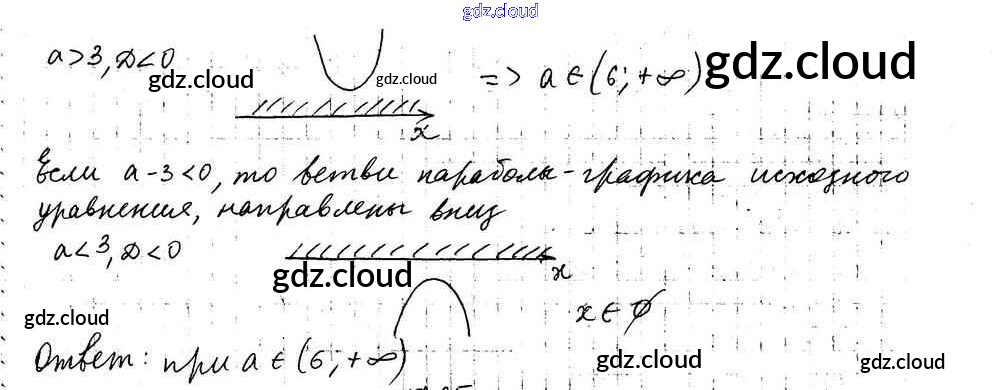 gdz.cloud
a>3, D<0
gdz.cloud
gdz.cloud
=> a∈(6; +∞)
gdz.cloud
x
Если a-3<0, то ветви параболы-графика исходного
уравнения, направлены вниз
a<3, D<0
gdz.cloud
x
gdz.cloud
x∈∅
Ответ: при a∈(6; +∞)
gdz.cloud
gdz.cloud